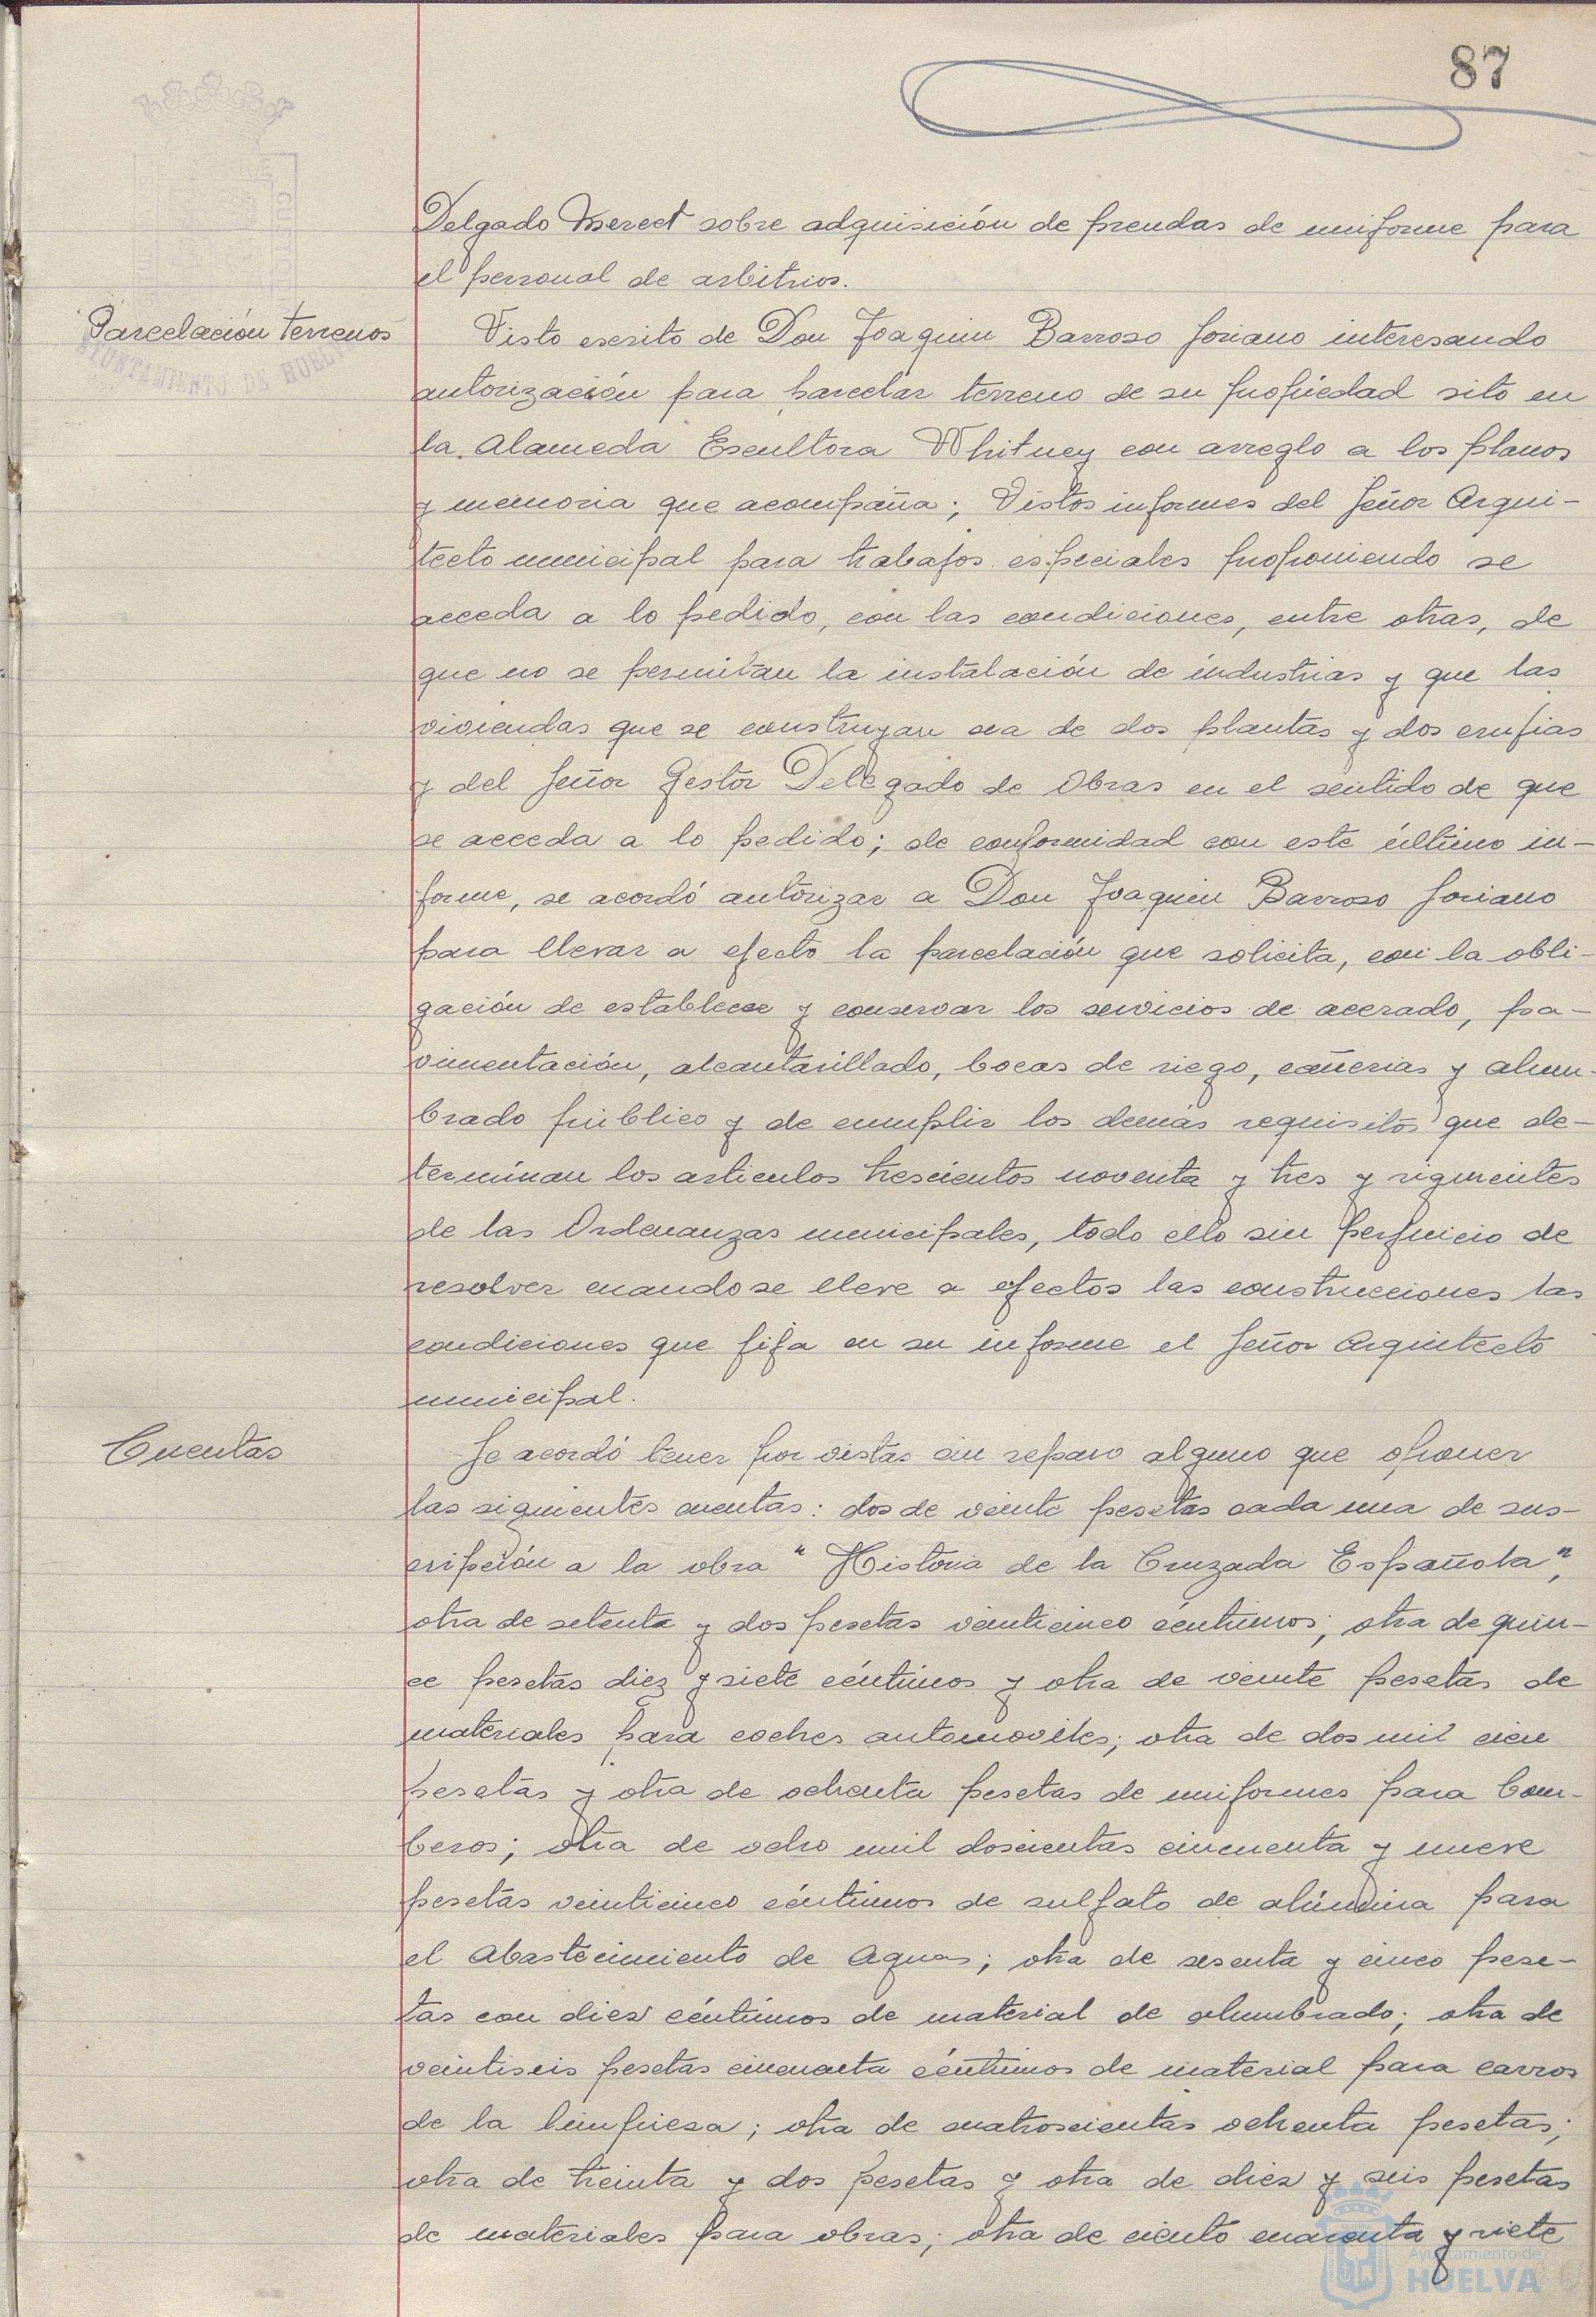 87
Delgado Merect sobre adquisición de prendas de uniforme para
el personal de arbitrios.
Parcelación terrenos
AYUNTAMIENTO DE HUELVA
Visto escrito de Don Joaquin Barroso Soriano interesando
autorización para parcelar terreno de su propiedad sito en
la Alameda Escultora Whitney con arreglo a los planos
y memoria que acompaña; Vistos informes del Señor Arqui-
tecto municipal para trabajos especiales proponiendo se
acceda a lo pedido, con las condiciones, entre otras, de
que no se permitan la instalación de industrias y que las
viviendas que se construyan sea de dos plantas y dos crujias
y del Señor Gestor Delegado de Obras en el sentido de que
se acceda a lo pedido; de conformidad con este último in-
forme, se acordó autorizar a Don Joaquin Barroso Soriano
para llevar a efecto la parcelación que solicita, con la obli-
gación de establecer y conservar los servicios de acerado, pa-
vimentación, alcantarillado, bocas de riego, cañerias y alum-
brado público y de cumplir los demás requisitos que de-
terminan los articulos trescientos noventa y tres y siguientes
de las Ordenanzas municipales, todo ello sin perjuicio de
resolver cuando se lleve a efectos las construcciones las
condiciones que fija en su informe el Señor Arquitecto
municipal.
Cuentas
Se acordó tener por vistas sin reparo alguno que oponer
las siguientes cuentas: dos de veinte pesetas cada una de sus-
cripción a la obra "Historia de la Cruzada Española",
otra de setenta y dos pesetas veinticinco céntimos; otra de quin-
ce pesetas diez y siete céntimos y otra de veinte pesetas de
materiales para coches automoviles; otra de dos mil cien
pesetas y otra de ochenta pesetas de uniformes para Bom-
beros; otra de ocho mil doscientas cincuenta y nueve
pesetas veinticinco céntimos de sulfato de alúmina para
el Abastecimiento de Aguas; otra de sesenta y cinco pese-
tas con diez céntimos de material de alumbrado; otra de
veintiseis pesetas cincuenta céntimos de material para carros
de la limpieza; otra de cuatroscientas ochenta pesetas;
otra de treinta y dos pesetas y otra de diez y seis pesetas
de materiales para obras; otra de ciento cuarenta y siete
Ayuntamiento de
HUELVA